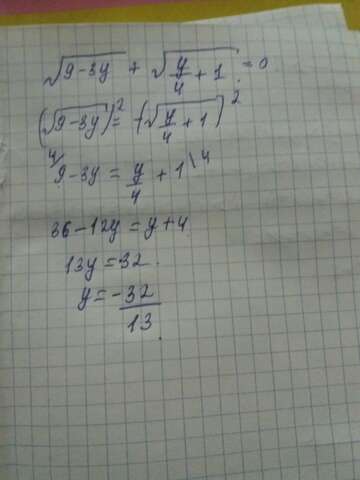 √(9-3y) + √(y/4 + 1) = 0
(√(9-3y))² = (-√(y/4 + 1))²
⁴⁄ 9-3y = y/4 + 1 \⁴
36-12y = y+4
13y = 32.
y = -32/13.